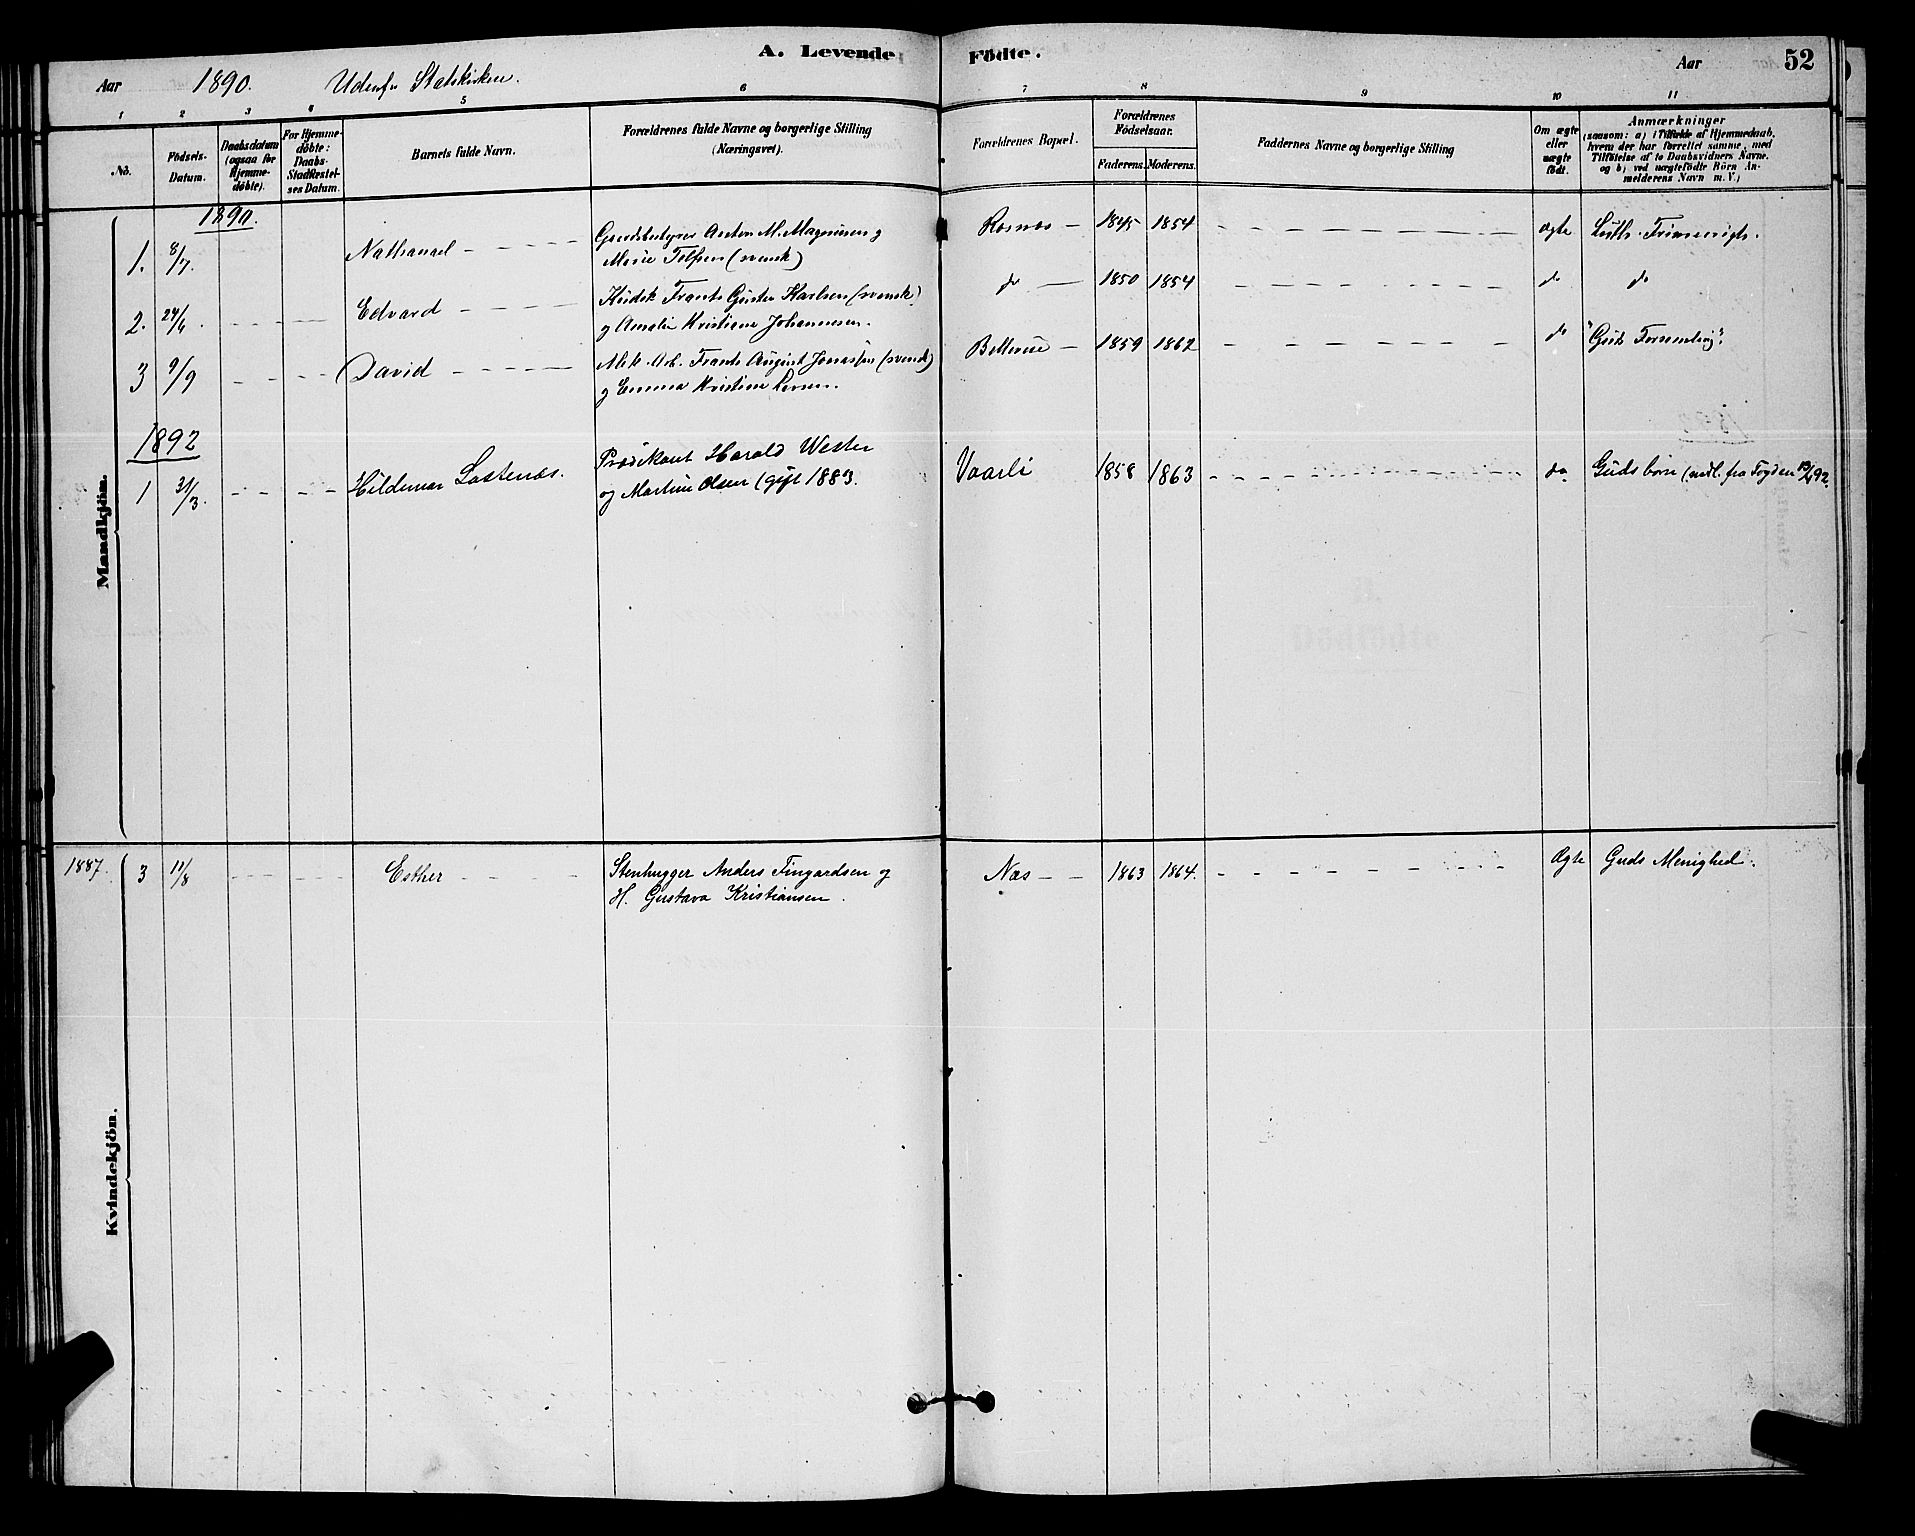 A. Levende Födte.
Aar 1890. Udenfr Statskirken. Aar 52
1 2 3 4 5 6 7 8 9 10 11
No. Födsels-Datum. Daabsdatum (ogsaa for Hjemme-döbte). For Hjemme-döbte: Daabs-Stadfæstel-ses Datum. Barnets fulde Navn. Forældrenes fulde Navne og borgerlige Stilling (Næringsvei). Forældrenes Bopæl. Forældrenes Födselsaar. Faderens. Moderens. Faddernes Navne og borgerlige Stilling Om ægte eller uægte födt. Anmærkninger (saasom: a) i Tilfælde af Hjemmedaab, hvem der har forrettet samme, med Tilföielse af to Daabsvidners Navne, og b) ved uægtefödte Börn An-melderens Navn m. V.)
Mandkjön.
1890.
1. 8/7. Nathanael Gaardsbestyrer Anton M. Magnusen g Rosnes 1845 1854 ægte Luth. Frimenigh.
Marie (svensk)
2. 24/6. Edvard Kudsk Frants Gustav Karlsen (svensk) do 1850 1854 do do
g Amalie Kristiane Johannesen.
3 9/9 David Mek. Arb. Frants August Jonassen (svensk) Bellevue 1859 1862 do "Guds Forsamling"
g Emma Kristine Larsen.
1892
1 31/3. Hildemar Lastenæs. Prædikant Harald Wester Vaarli 1858 1863 do. Guds börn (medl. fra Fogden 92.
og Martine Olsen (gift 1883.
Kvindekjön.
1887. 3 11/8 Esther Stenhugger Anders Fingardsen og Næs 1863 1864. Ægte Guds Menighed.
H. Gustava Kristiansen.